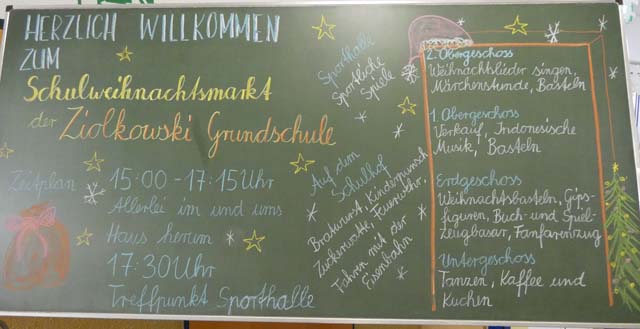 HERZLICH WILLKOMMEN
ZUM
Schulweihnachtsmarkt
der Ziolkowski Grundschule
Zeitplan 15:00-17:15Uhr
Allerlei im und ums
Haus herum
17:30Uhr
Treffpunkt Sporthalle
Sporthalle
Sportliche
Spiele
Auf dem
Schulhof
Bratwurst, Kinderpunsch
Zuckerwatte, Feuerlöhr.
Fahren mit der
Eisenbahn
2. Obergeschoss
Weihnachtslieder singen,
Märchenstunde, Basteln
1. Obergeschoss
Verkauf, Indonesische
Musik, Basteln
Erdgeschoss
Weihnachtsbasteln, Gips-
figuren, Buch- und Spiel-
zeugbasar, Fanfarenzug
Untergeschoss
Tanzen, Kaffee und
Kuchen